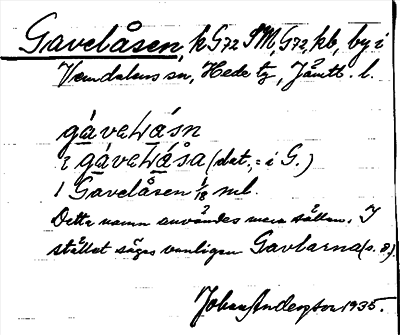 Gavelåsen, k G72 SM, G72, kb, by i
Vemdalens sn, Hede tg, Jämtl. l.
gávelásn
i gávelása (dat., = i G.)
1 Gavelåsen 1/18 ml.
Detta namn användes mera sällan. I
stället säges vanligen Gavlarna (s. 8).
Johan Anderson 1935.